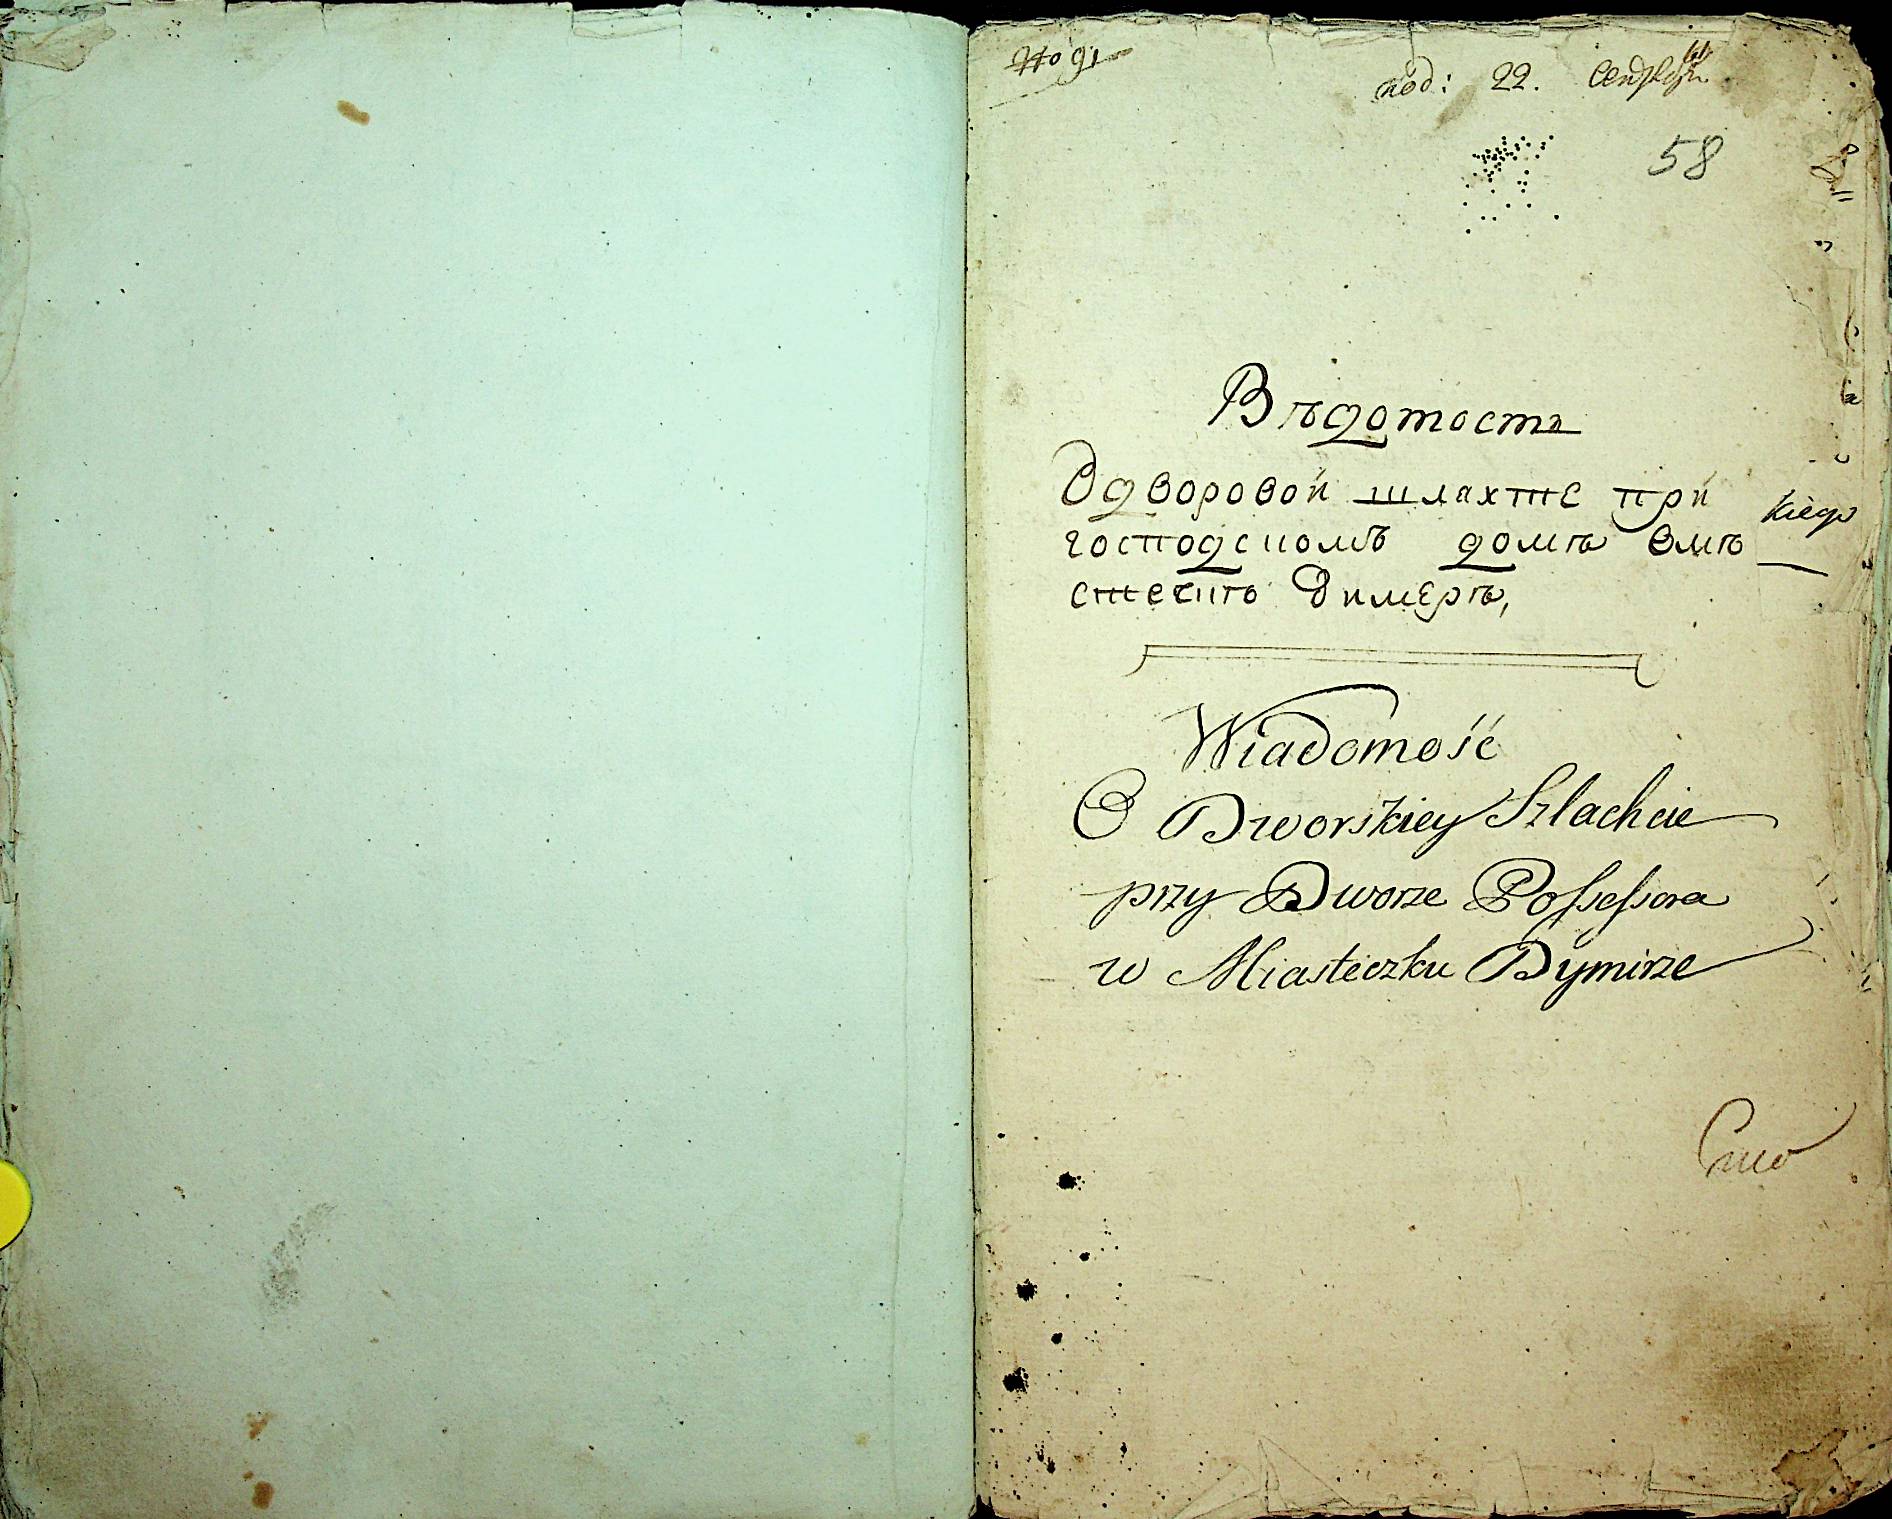 No 91
под: 22. Сентября
58
Вѣдомость
О дворовой шлахте при
господскомъ домѣ вмѣ
стечкѣ Димерѣ,
kiego
Wiadomość
O Dworskiey Szlachcie
przy Dworze Possessora
w Miasteczku Dymirze